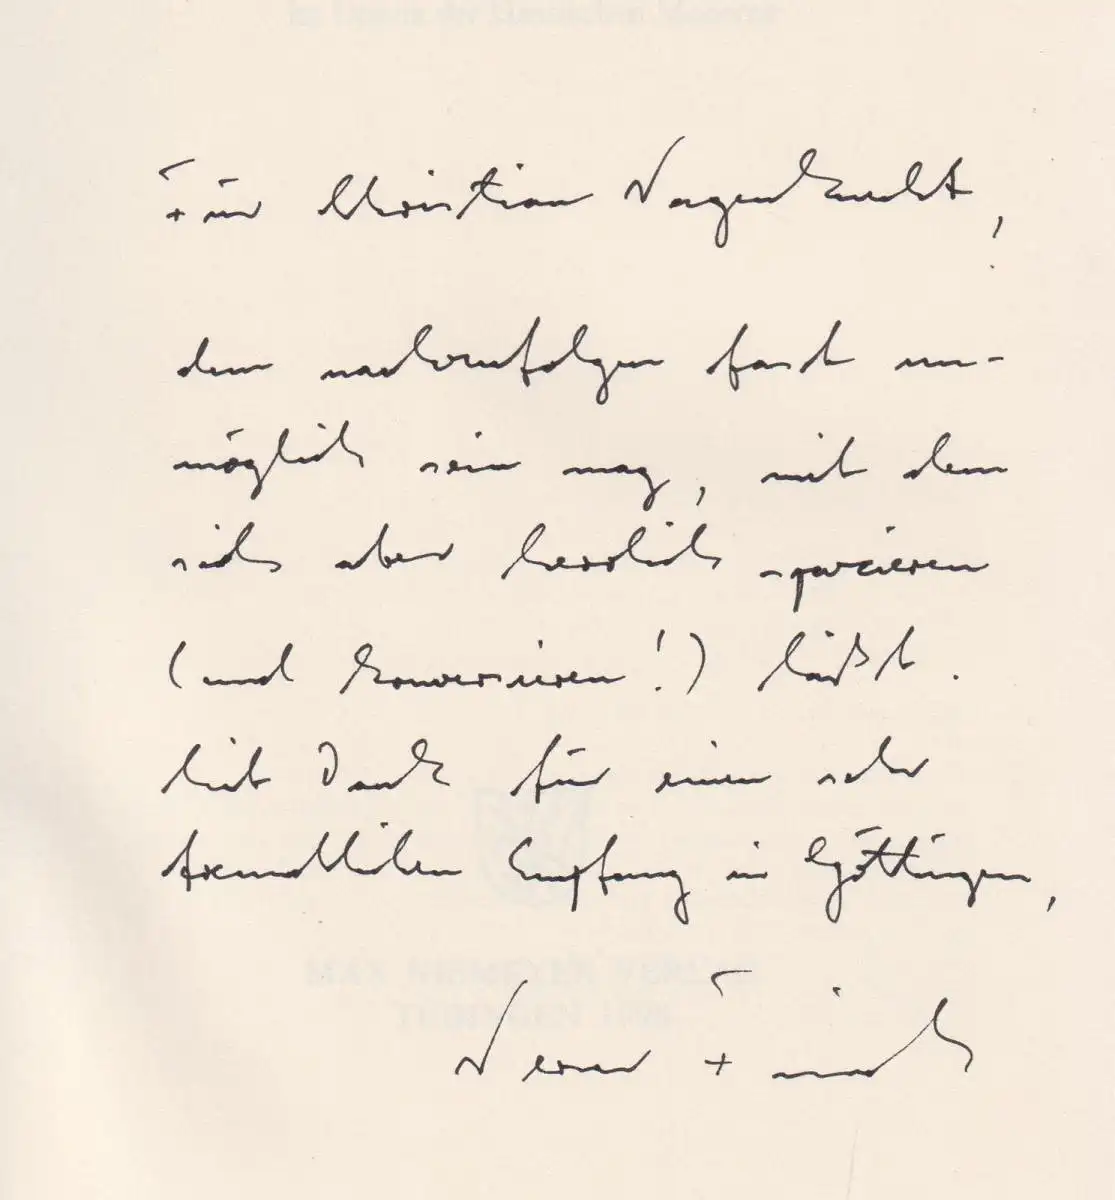 Für Christian Wagenknecht,
dem nachzufolgen fast un-
möglich sein mag, mit dem
sich aber herrlich spazieren
(und konversieren!) läßt.
Mit Dank für einen sehr
freundlichen Empfang in Göttingen,
Werner Frick
MAX NIEMEYER VERLAG
TÜBINGEN